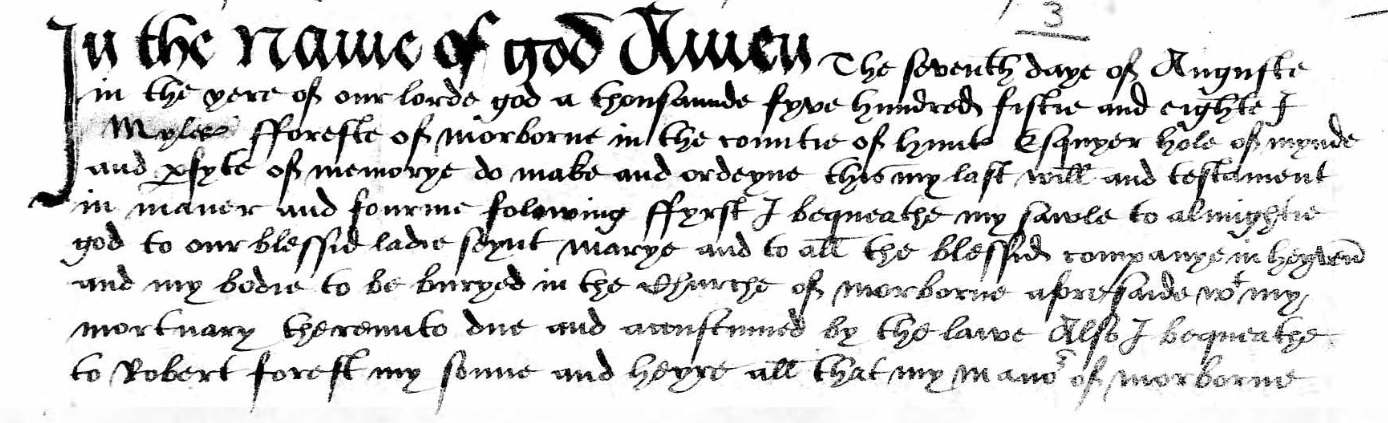 3
In the Name of god Amen The seventh daye of Auguste
in the yere of our lorde god a thousaunde fyve hundred fiftie and eighte I
Myles fforeste of morborne in the countie of Hunt Esquyer hole of mynde
and pfyte of memorye do make and ordeyne this my last will and testament
in maner and fourme folowing ffyrst I bequeathe my sawle to almightie
god to our blessid ladie seynt marye and to all the blessid companye in heaven
and my bodie to be buryed in the Churche of morborne aforesaide wt my
mortuary thereunto due and accustumed by the lawe Also I bequeathe
to Robert forest my sonne and heyre all that my mano of morborne